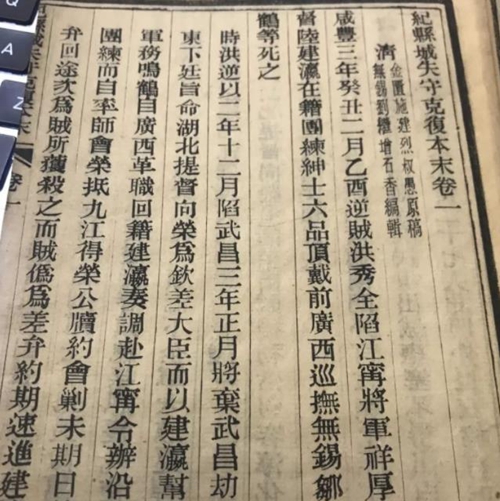 紀縣城失守克復本末卷一
清
金匱施建烈叔愚原稿
無錫劉繼增石香編輯
咸豐三年癸丑二月乙酉逆賊洪秀全陷江甯將軍祥厚
督陸建瀛在籍團練紳士六品頂戴前廣西巡撫無錫鄒
鶴等死之
時洪逆以二年十二月陷武昌三年正月將棄武昌劫
東下廷旨命湖北提督向榮爲欽差大臣而以建瀛幫
軍務鳴鶴自廣西革職回籍建瀛奏調赴江甯令辦沿
團練而自率師會榮抵九江得榮公牘約會剿未期日
弁回途次爲賊所獲殺之而賊僞爲差弁約期速進建
本末
卷一
Q
A
Z